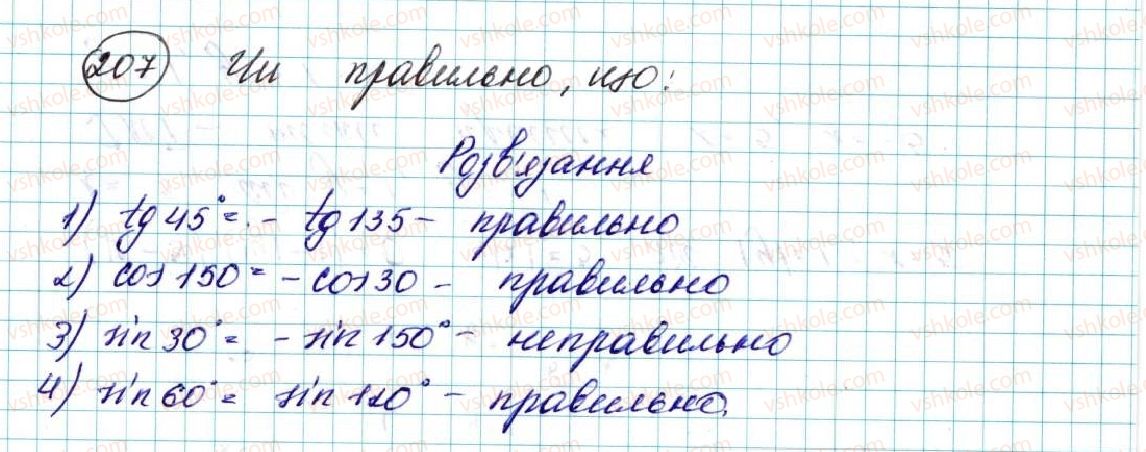 207 Чи правильно, що:
Розв'язання
1) tg 45° = - tg 135 - правильно
2) cos 150° = - cos 30 - правильно
3) sin 30° = - sin 150° - неправильно
4) sin 60° = sin 120° - правильно.